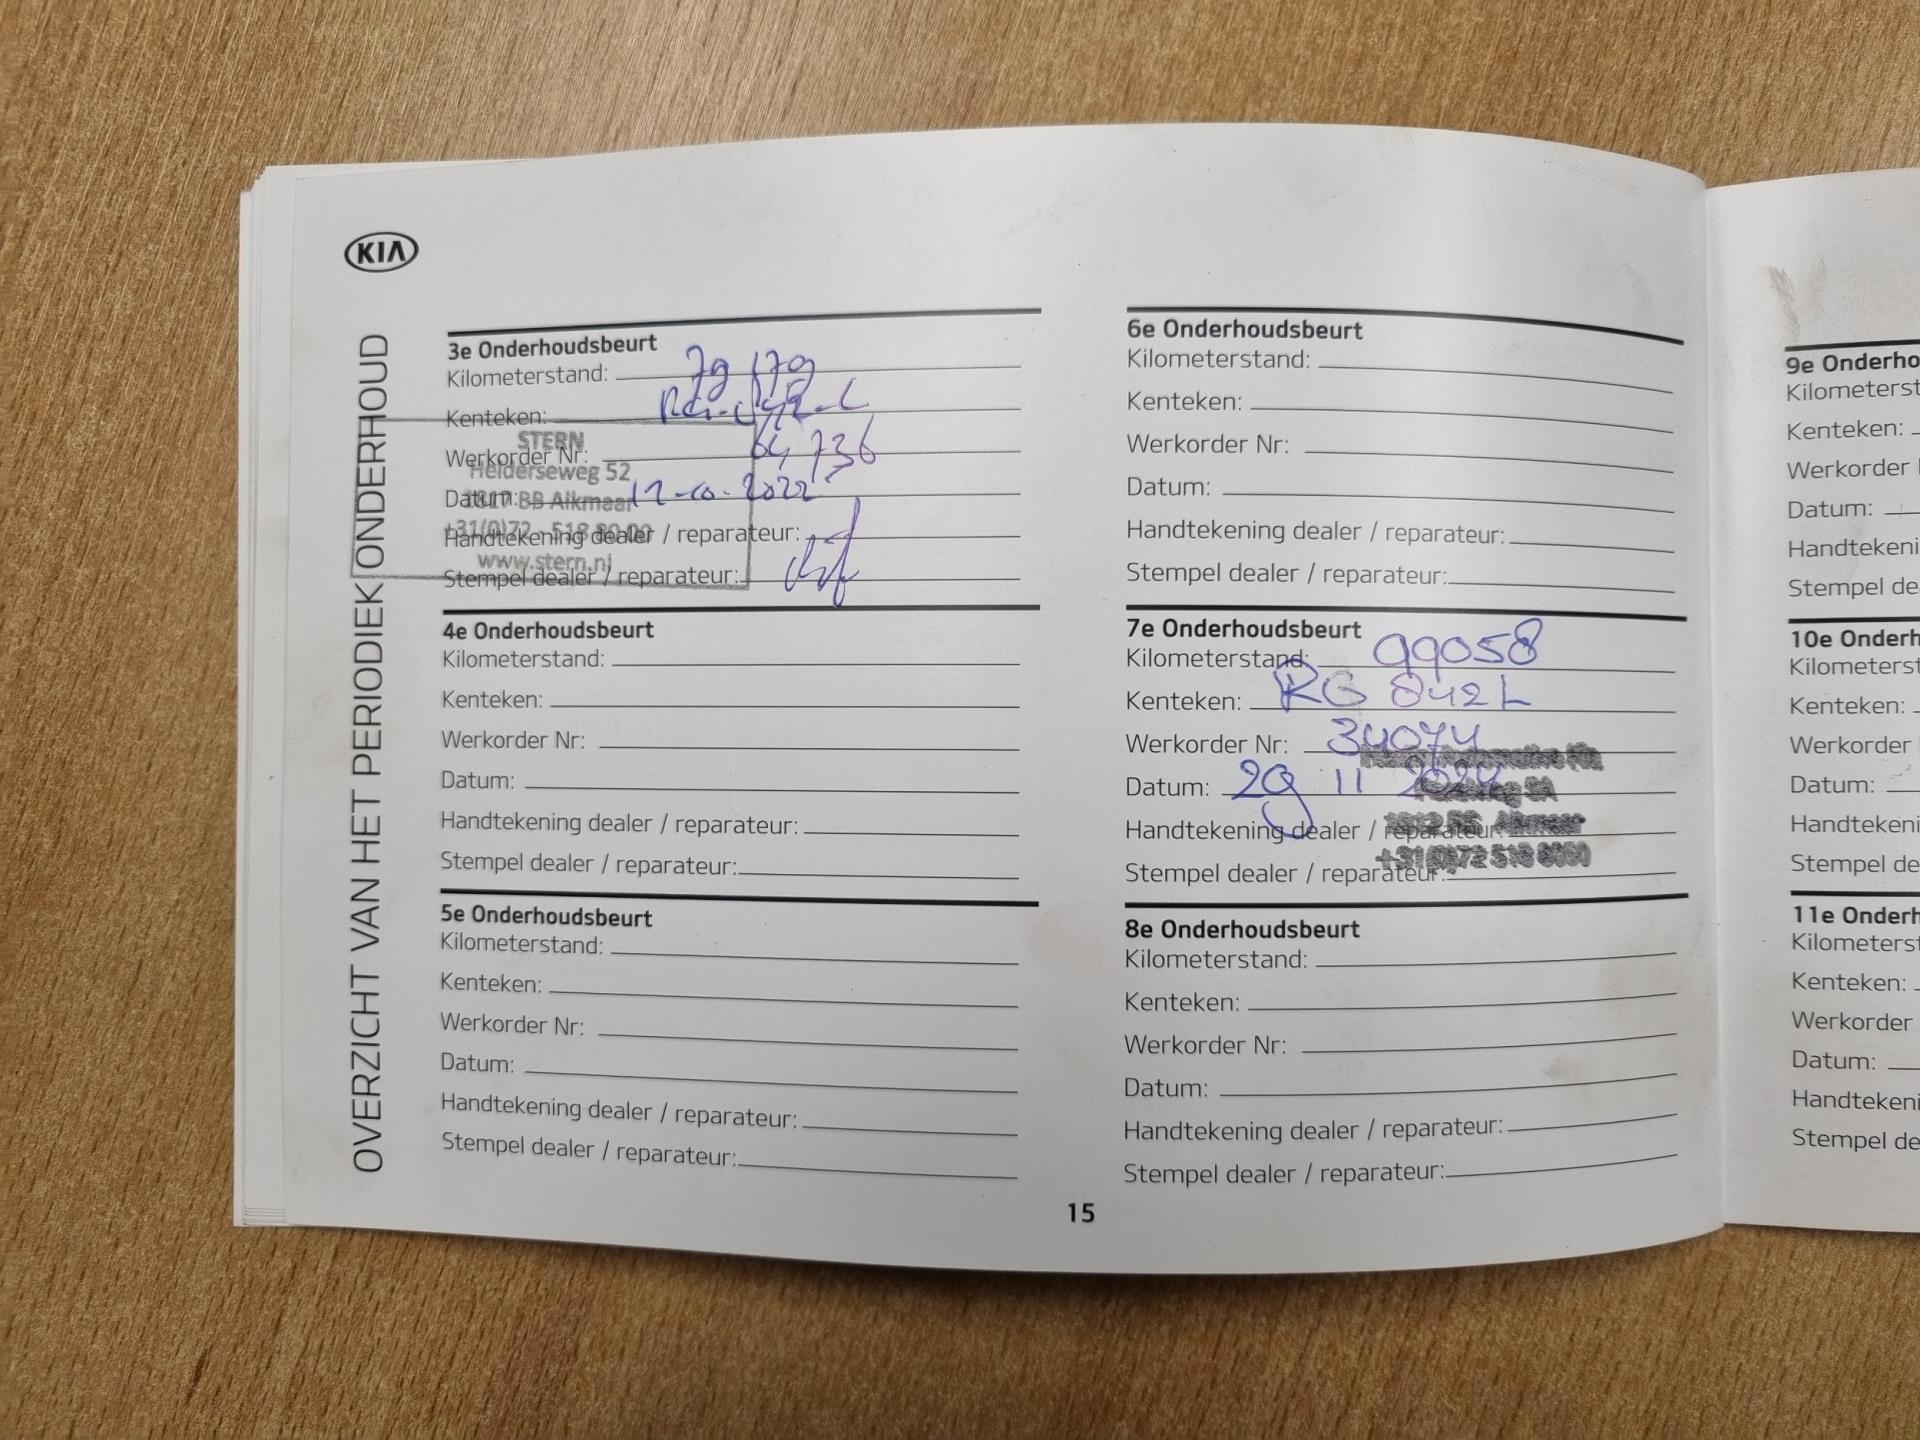 KIA
OVERZICHT VAN HET PERIODIEK ONDERHOUD
3e Onderhoudsbeurt
Kilometerstand: 79179
Kenteken:
Werkorder Nr: 64736
Datum: 12-10-2022
Handtekening dealer / reparateur:
Stempel dealer / reparateur:
STERN
Helderseweg 52
1817 BB Alkmaar
+31(0)72 - 518 80 00
www.stern.nl
4e Onderhoudsbeurt
Kilometerstand:
Kenteken:
Werkorder Nr:
Datum:
Handtekening dealer / reparateur:
Stempel dealer / reparateur:
5e Onderhoudsbeurt
Kilometerstand:
Kenteken:
Werkorder Nr:
Datum:
Handtekening dealer / reparateur:
Stempel dealer / reparateur:
6e Onderhoudsbeurt
Kilometerstand:
Kenteken:
Werkorder Nr:
Datum:
Handtekening dealer / reparateur:
Stempel dealer / reparateur:
7e Onderhoudsbeurt
Kilometerstand: 99058
Kenteken: RG 842 L
Werkorder Nr: 34074
Datum: 29 11 2024
Handtekening dealer / reparateur:
Stempel dealer / reparateur:
Alkmaar
+31(0)72 518 8000
8e Onderhoudsbeurt
Kilometerstand:
Kenteken:
Werkorder Nr:
Datum:
Handtekening dealer / reparateur:
Stempel dealer / reparateur:
15
9e Onderho
Kilometerst
Kenteken:
Werkorder
Datum:
Handtekeni
Stempel de
10e Onderh
Kilometerst
Kenteken:
Werkorder
Datum:
Handtekeni
Stempel de
11e Onderh
Kilometerst
Kenteken:
Werkorder
Datum:
Handtekeni
Stempel de